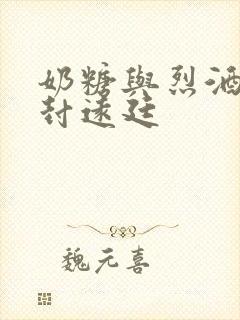 奶糖與烈酒
封遠廷
魏元喜